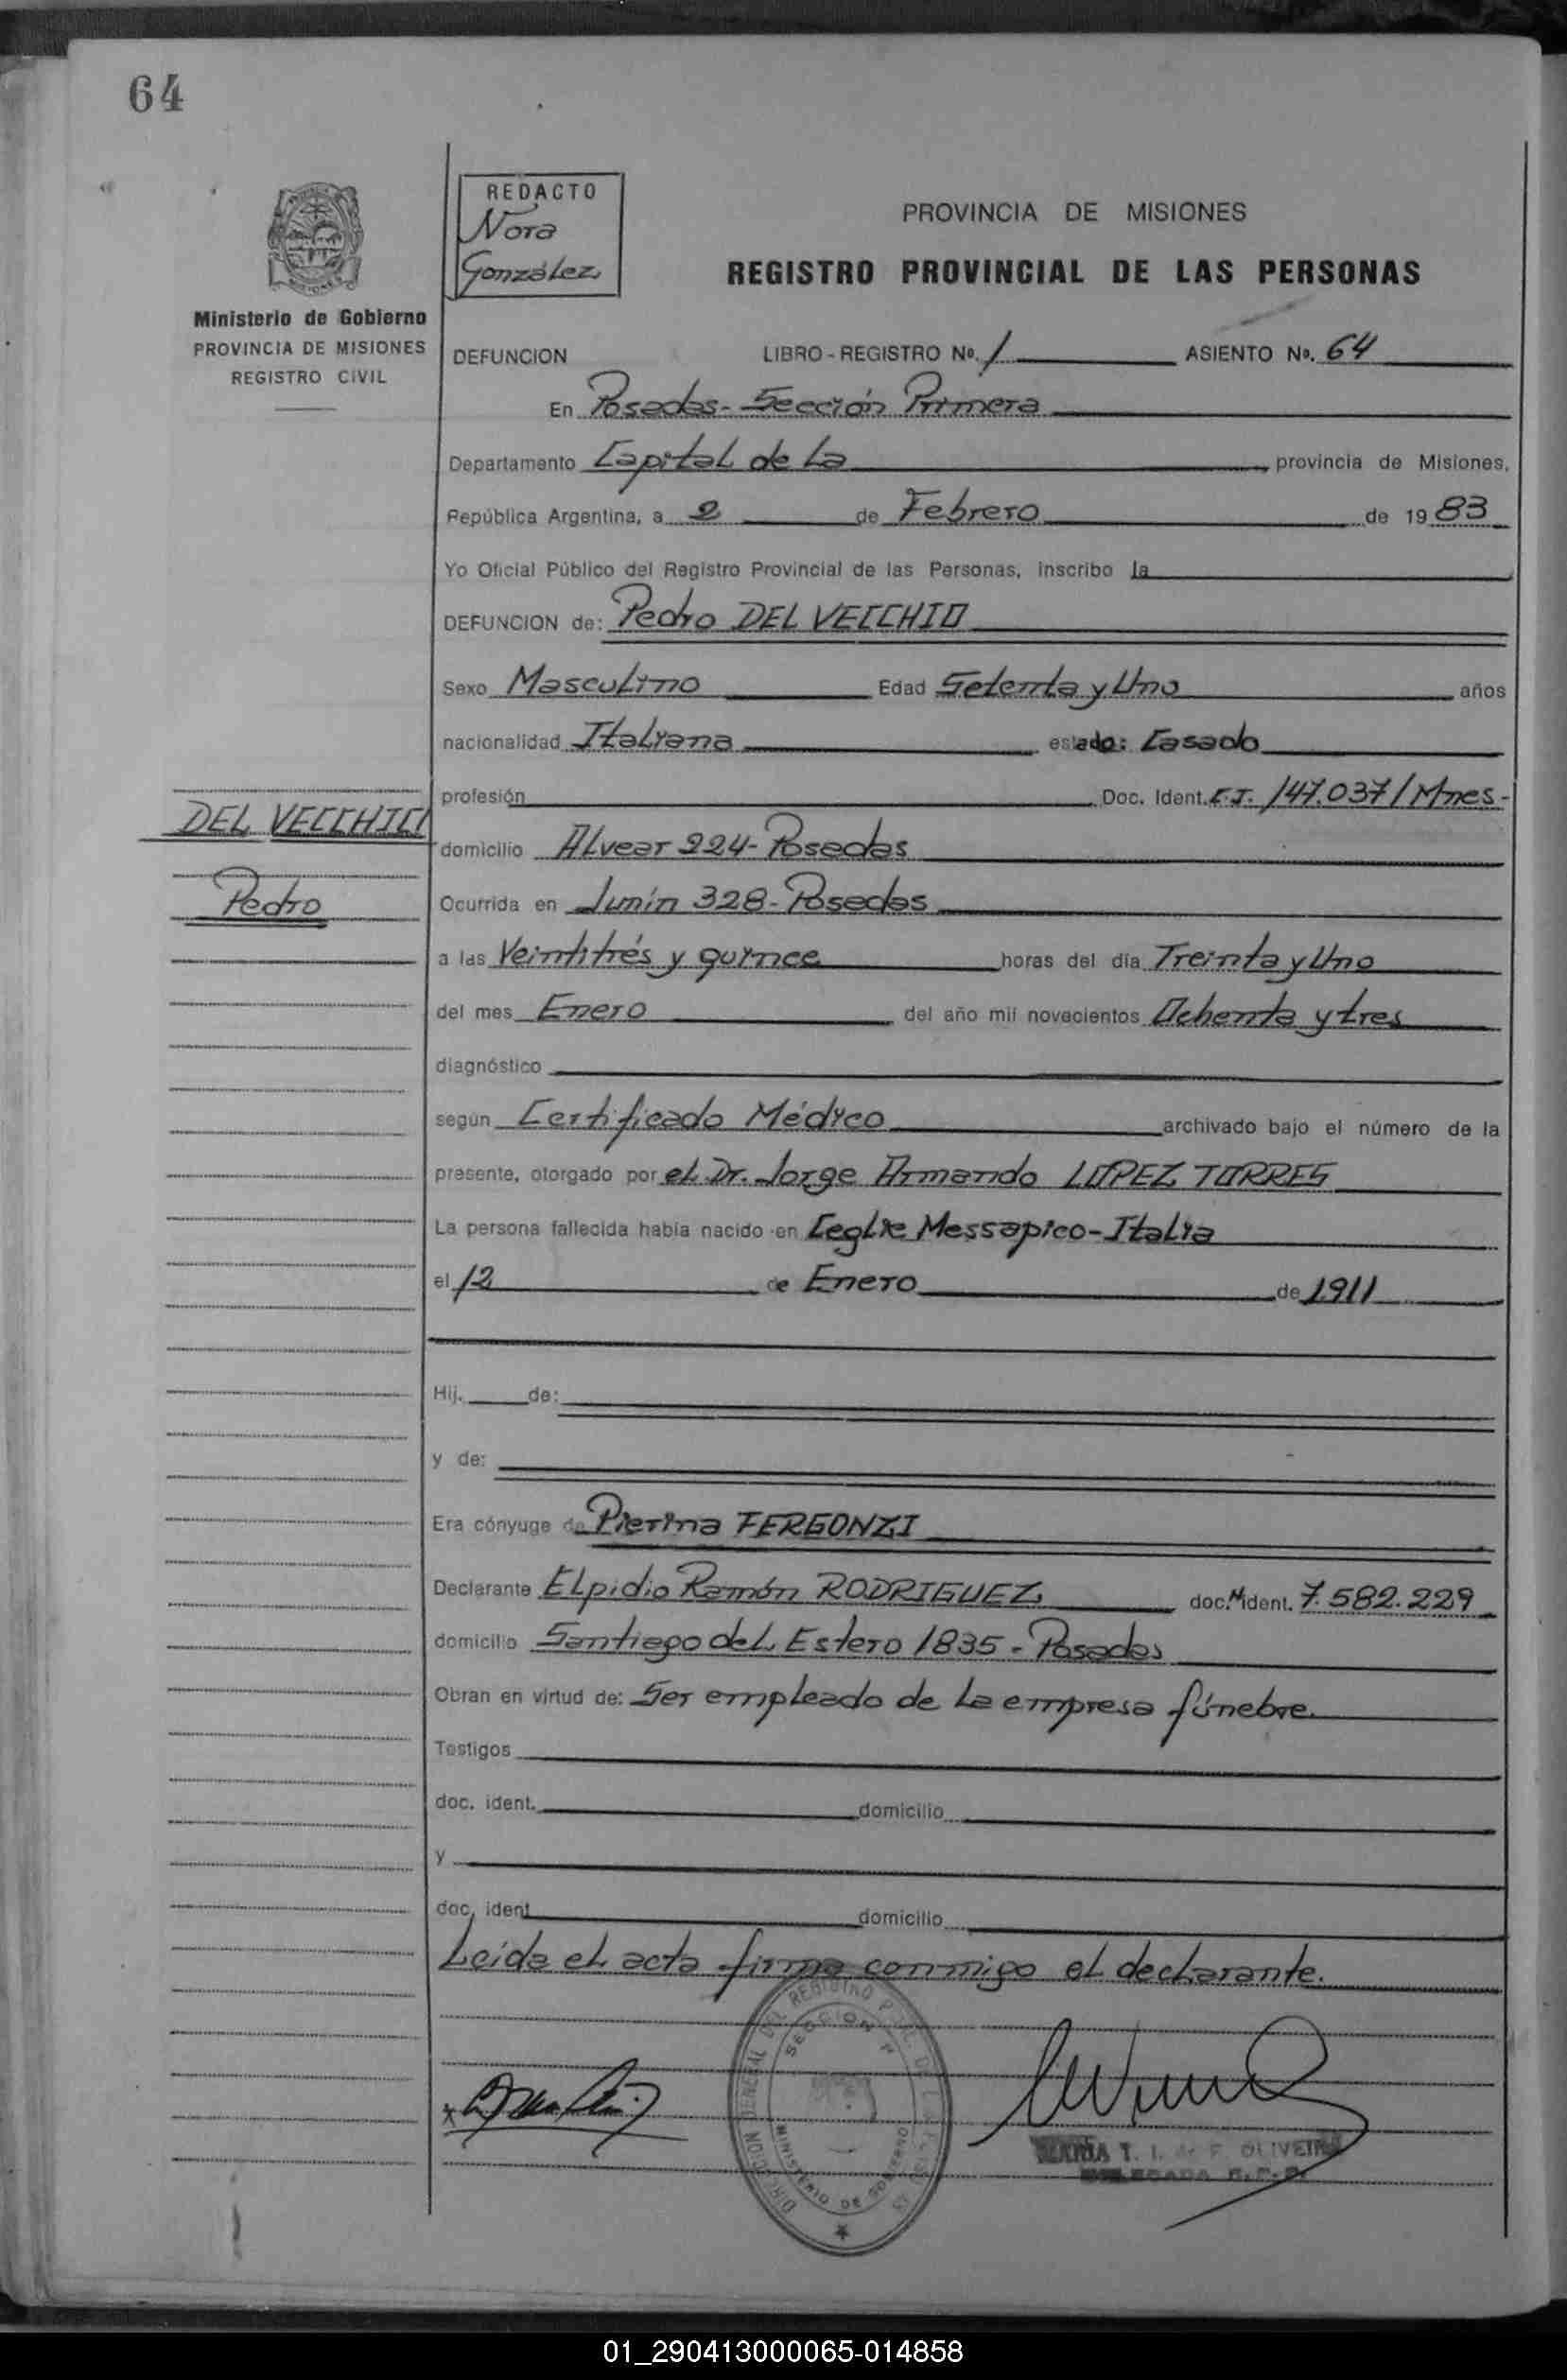 64
REDACTO
Nora
González
Ministerio de Gobierno
PROVINCIA DE MISIONES
REGISTRO CIVIL
PROVINCIA DE MISIONES
REGISTRO PROVINCIAL DE LAS PERSONAS
DEFUNCION LIBRO - REGISTRO Nº. 1 ASIENTO Nº. 64
En Posadas - Sección Primera
Departamento Capital de la provincia de Misiones,
República Argentina, a 2 de Febrero de 1983
Yo Oficial Público del Registro Provincial de las Personas, inscribo la
DEFUNCION de: Pedro DEL VECCHIO
Sexo Masculino Edad Setenta y Uno años
nacionalidad Italiana estado: Casado
profesión Doc. Ident. C.I. 147.037/Mnes-
DEL VECCHIO
domicilio Alvear 224 - Posadas
Pedro
Ocurrida en Junín 328 - Posadas
a las Veintitrés y quince horas del día Treinta y Uno
del mes Enero del año mil novecientos Ochenta y tres
diagnóstico
según Certificado Médico archivado bajo el número de la
presente, otorgado por el Dr. Jorge Armando LOPEZ TORRES
La persona fallecida había nacido en Ceglie Messapico - Italia
el 12 de Enero de 1911
Hij. de:
y de:
Era cónyuge de Pierina FERGONZI
Declarante Elpidio Ramón RODRIGUEZ doc. M ident. 7.582.229
domicilio Santiago del Estero 1835 - Posadas
Obran en virtud de: Ser empleado de la empresa fúnebre.
Testigos
doc. ident. domicilio
y
doc. ident domicilio
Leida el acta firma conmigo el declarante.
DIRECCION GENERAL DEL REGISTRO P
SECCION
MINISTERIO DE GOBIERNO
MARIA T. I. de F. OLIVEIRA
01_290413000065-014858